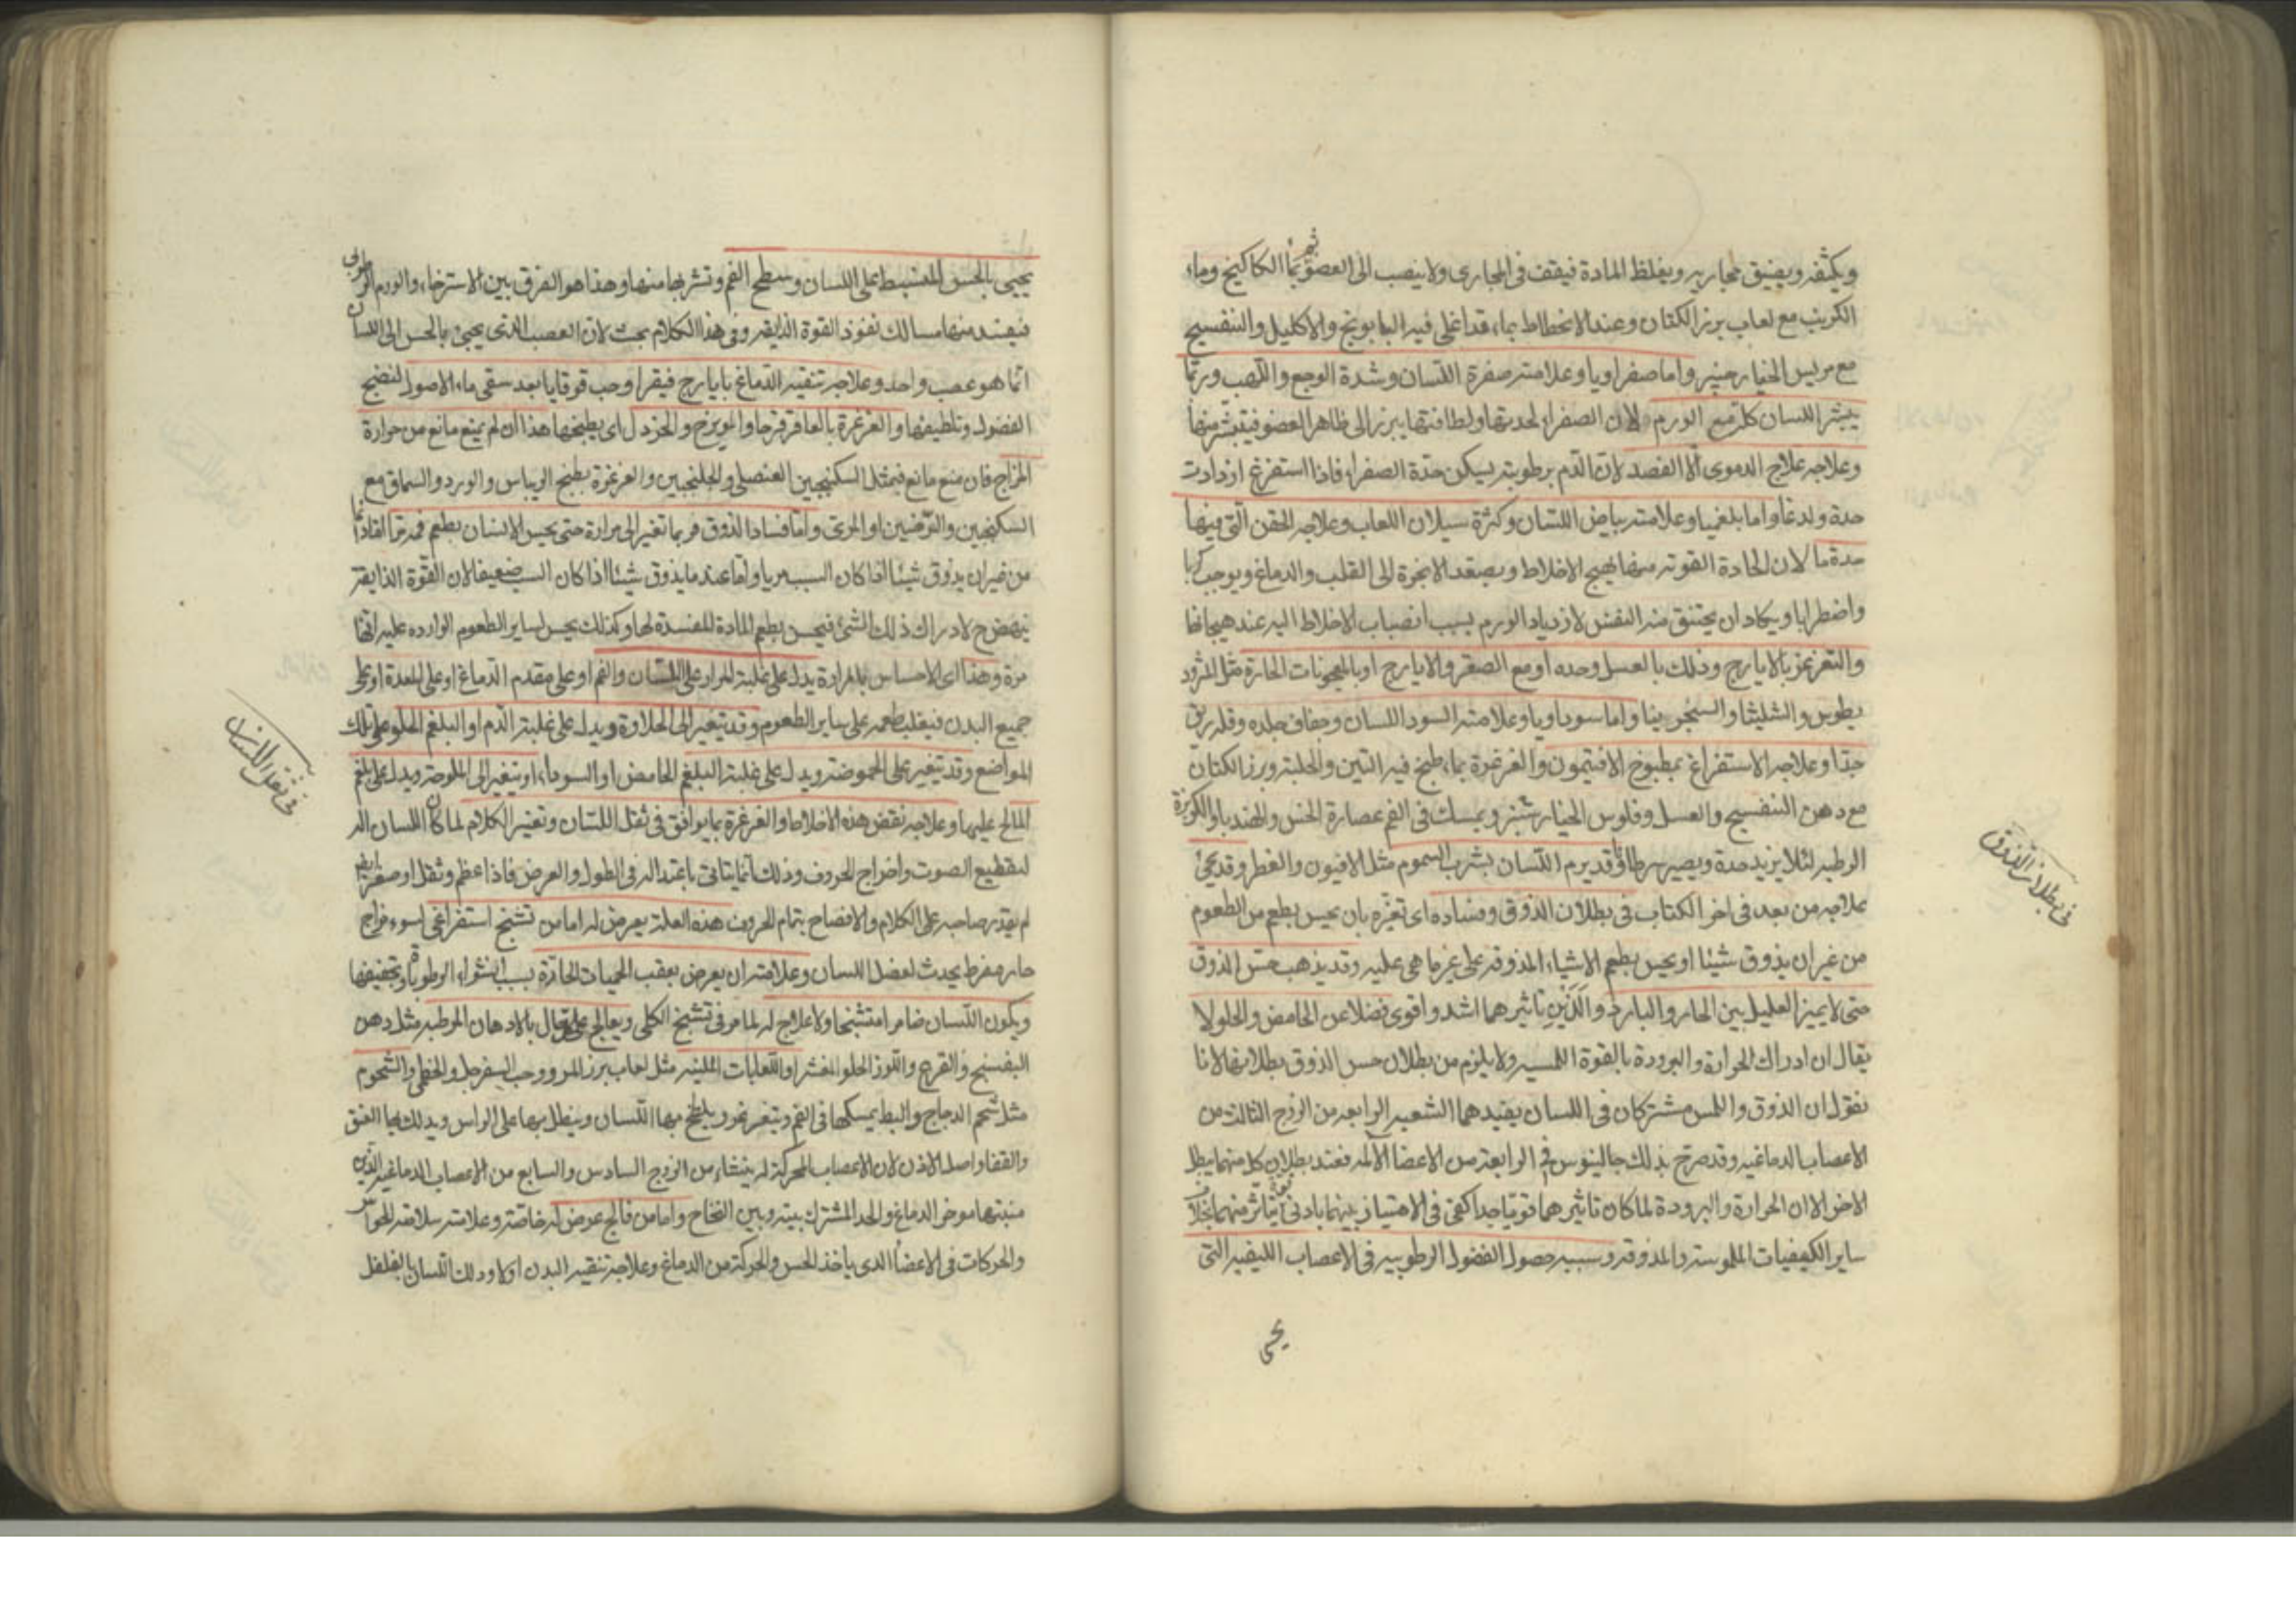 ويكثفه ويضيق مجاريه ويغلظ المادة فيقف فى المجارى ولا ينصب الى العضو ثم بماء الكاكنج وماء
الكرنب مع لعاب بزر الكتان وعند الانحطاط بماء قد اغلى فيه البابونج والاكليل والبنفسج
مع مريس الخيارشنبر واما صفراويا وعلامته صفرة اللسان وشدة الوجع واللهب وربما
يبثر اللسان كله مع الورم لان الصفراء لحدتها ولطافتها يبرز الى ظاهر العضو فيتبثر منها
وعلاجه علاج الدموى الا الفصد لان الدم برطوبته يسكن حدة الصفراء فاذا استفرغ ازدادت
حدة ولدغا واما بلغميا وعلامته بياض اللسان وكثرة سيلان اللعاب وعلاجه الحقن التى فيها
حدة ما لان الحادة القوية منها يهيج الاخلاط ويصعد الابخرة الى القلب والدماغ ويوجب كربا
واضطرابا ويكاد ان يختنق منه النفس لازدياد الورم بسبب انصباب الاخلاط اليه عند هيجانها
والتغرغر بالايارج ودلك بالعسل وحده او مع الصعتر والايارج او بالمعجونات الحارة مثل المثرود
يطوس والشليثا والسنجرينيا واما سوداويا وعلامته السود اللسان وجفاف جلده وقلة ريق
جدا وعلاجه الاستفراغ بمطبوخ الافتيمون والغرغرة بماء طبخ فيه التين والحلبة وبزر الكتان
مع دهن البنفسج والعسل وفلوس الخيارشنبر ويمسك فى الفم عصارة الخس والهندبا والكزبرة
الرطبه لئلا يزيد حدة ويصير سرطانا وقد يرم اللسان بشرب السموم مثل الافيون والفطر وقد يجئ
علاجه من بعد فى اخر الكتاب فى بطلان الذوق وفساده اى تغيره بان يحس بطعم من الطعوم
من غير ان يذوق شيئا او يحس بطعم الاشياء المذوقة على غير ما هى عليه وقد يذهب حس الذوق
حتى لا يميز العليل بين الحار والبارد والذين تاثيرهما اشد واقوى فضلا عن الحامض والحلو لا
يقال ان ادراك الحرارة والبرودة بالقوة اللمسيه ولا يلزم من بطلان حس الذوق بطلانها لانا
نقول ان الذوق واللمس مشتركان فى اللسان يفيدهما الشعبه الرابعه من الزوج الثالث من
الاعصاب الدماغيه وقد صرح بذلك جالينوس فى الرابعة من الاعضا الآلمه فعند بطلان كل منهما يبطل
الاخر الا ان الحرارة والبرودة لما كان تاثيرهما قويا جدا كفى فى الامتياز بينهما بادنى قوة يتاثر منهما بخلاف
ساير الكيفيات الملموسه والمذوقه وسببه حصول الفضول الرطوبيه فى الاعصاب الليفيه التى
يجئ
فى بطلان الذوق
يجيى بالحس المنبسط على اللسان وسطح الفم وتشربها منها وهذا هو الفرق بين الاسترخاء والورم الرطوبى
فيفسد منها مسالك نفوذ القوة الذايقه وفى هذا الكلام بحث لان العصب الذى يجيئ بالحس الى اللسان
انما هو عصب واحد وعلاجه تنقيه الدماغ بايارج فيقرا وحب قوقايا بعد سقى ماء الاصول لنضج
الفضول وتلطيفها والغرغرة بالعاقرقرحا والمويزج والخردل اى يطبخها هذا ان لم يمنع مانع من حرارة
المزاج فان منع مانع فبمثل السكنجبين العنصلى والجلنجبين والغرغرة بطبخ الريباس والورد والسماق مع
السكنجبين والترنجبين او المرى واما فساد الذوق فربما تغير الى مرارة حتى يحس الانسان بطعم فمه مرا اما
من غير ان يذوق شيئا اذا كان السبب قويا واما عند ما يذوق شيئا اذا كان السبب ضعيفا لان القوة الذايقه
ينهض ح لادراك ذلك الشئ فيحس بطعم المادة المفسدة لها وكذلك يحس لساير الطعوم الوارده عليه انها
مرة وهذا اى الاحساس بالمرارة يدل على غلبة المرار على اللسان والفم او على مقدم الدماغ او على المعدة او على
جميع البدن فيغلب طعمه على ساير الطعوم وقد يتغير الى الحلاوة ويدل على غلبة الدم او البلغم الحلو على تلك
المواضع وقد يتغير على الحموضة ويدل على غلبة البلغم الحامض او السوداء او يتغير الى الملوحة ويدل على بلغم
المالح عليها وعلاجه نقض هذه الاخلاط والغرغرة بما يوافق فى ثقل اللسان وتغير الكلام لما كان اللسان اله
لتقطيع الصوت واخراج الحروف وذلك انما يتاتى باعتداله فى الطول والعرض فاذا عظم وثقل او صغر
لم يقدر صاحبه على الكلام والافصاح بتمام الحروف هذه العلة يعرض له اما من تشنج استفراغى لسوء مزاج
حار مفرط يحدث لعضل اللسان وعلامته ان يعرض بعقب الحميات الحادة بسبب انشواء الرطوبات وتجفيفها
ويكون اللسان ضامرا متشنجا ولا علاج له لما مر فى تشنج الكلى ويعالج على حال بالادهان المرطبه مثل دهن
البفسج والقرع واللوز الحلو المقشر او اللعابات اللينه مثل لعاب بزر المرو وحب السفرجل والخطمى والشحوم
مثل شحم الدجاج والبط يمسكها فى الفم ويتغرغر ويلطخ بها اللسان وينطل بها على الراس ويدلك بها العنق
والقفا واصل الاذن لان الاعصاب المحركة له ينشاء من الزوج السادس والسابع من الاعصاب الدماغيه الذين
منبتها موخر الدماغ والحد المشترك بينه وبين النخاع واما من فالج عرض له خاصة وعلامته سلامة الحواس
والحركات فى الاعضا الذى ياخذ الحس والحركة من الدماغ وعلاجه تنقيه البدن اولا ودلك اللسان بالفلفل
فى ثقل اللسان